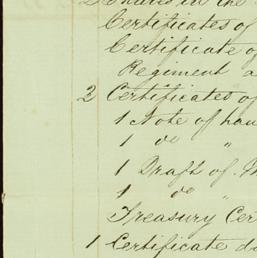 2 Shares in the
Certificates of
Certificate of
Regiment a
2 Certificates of
1 Note of han
1 do "
1 Draft of
1 do "
Treasury Cer
1 Certificate d